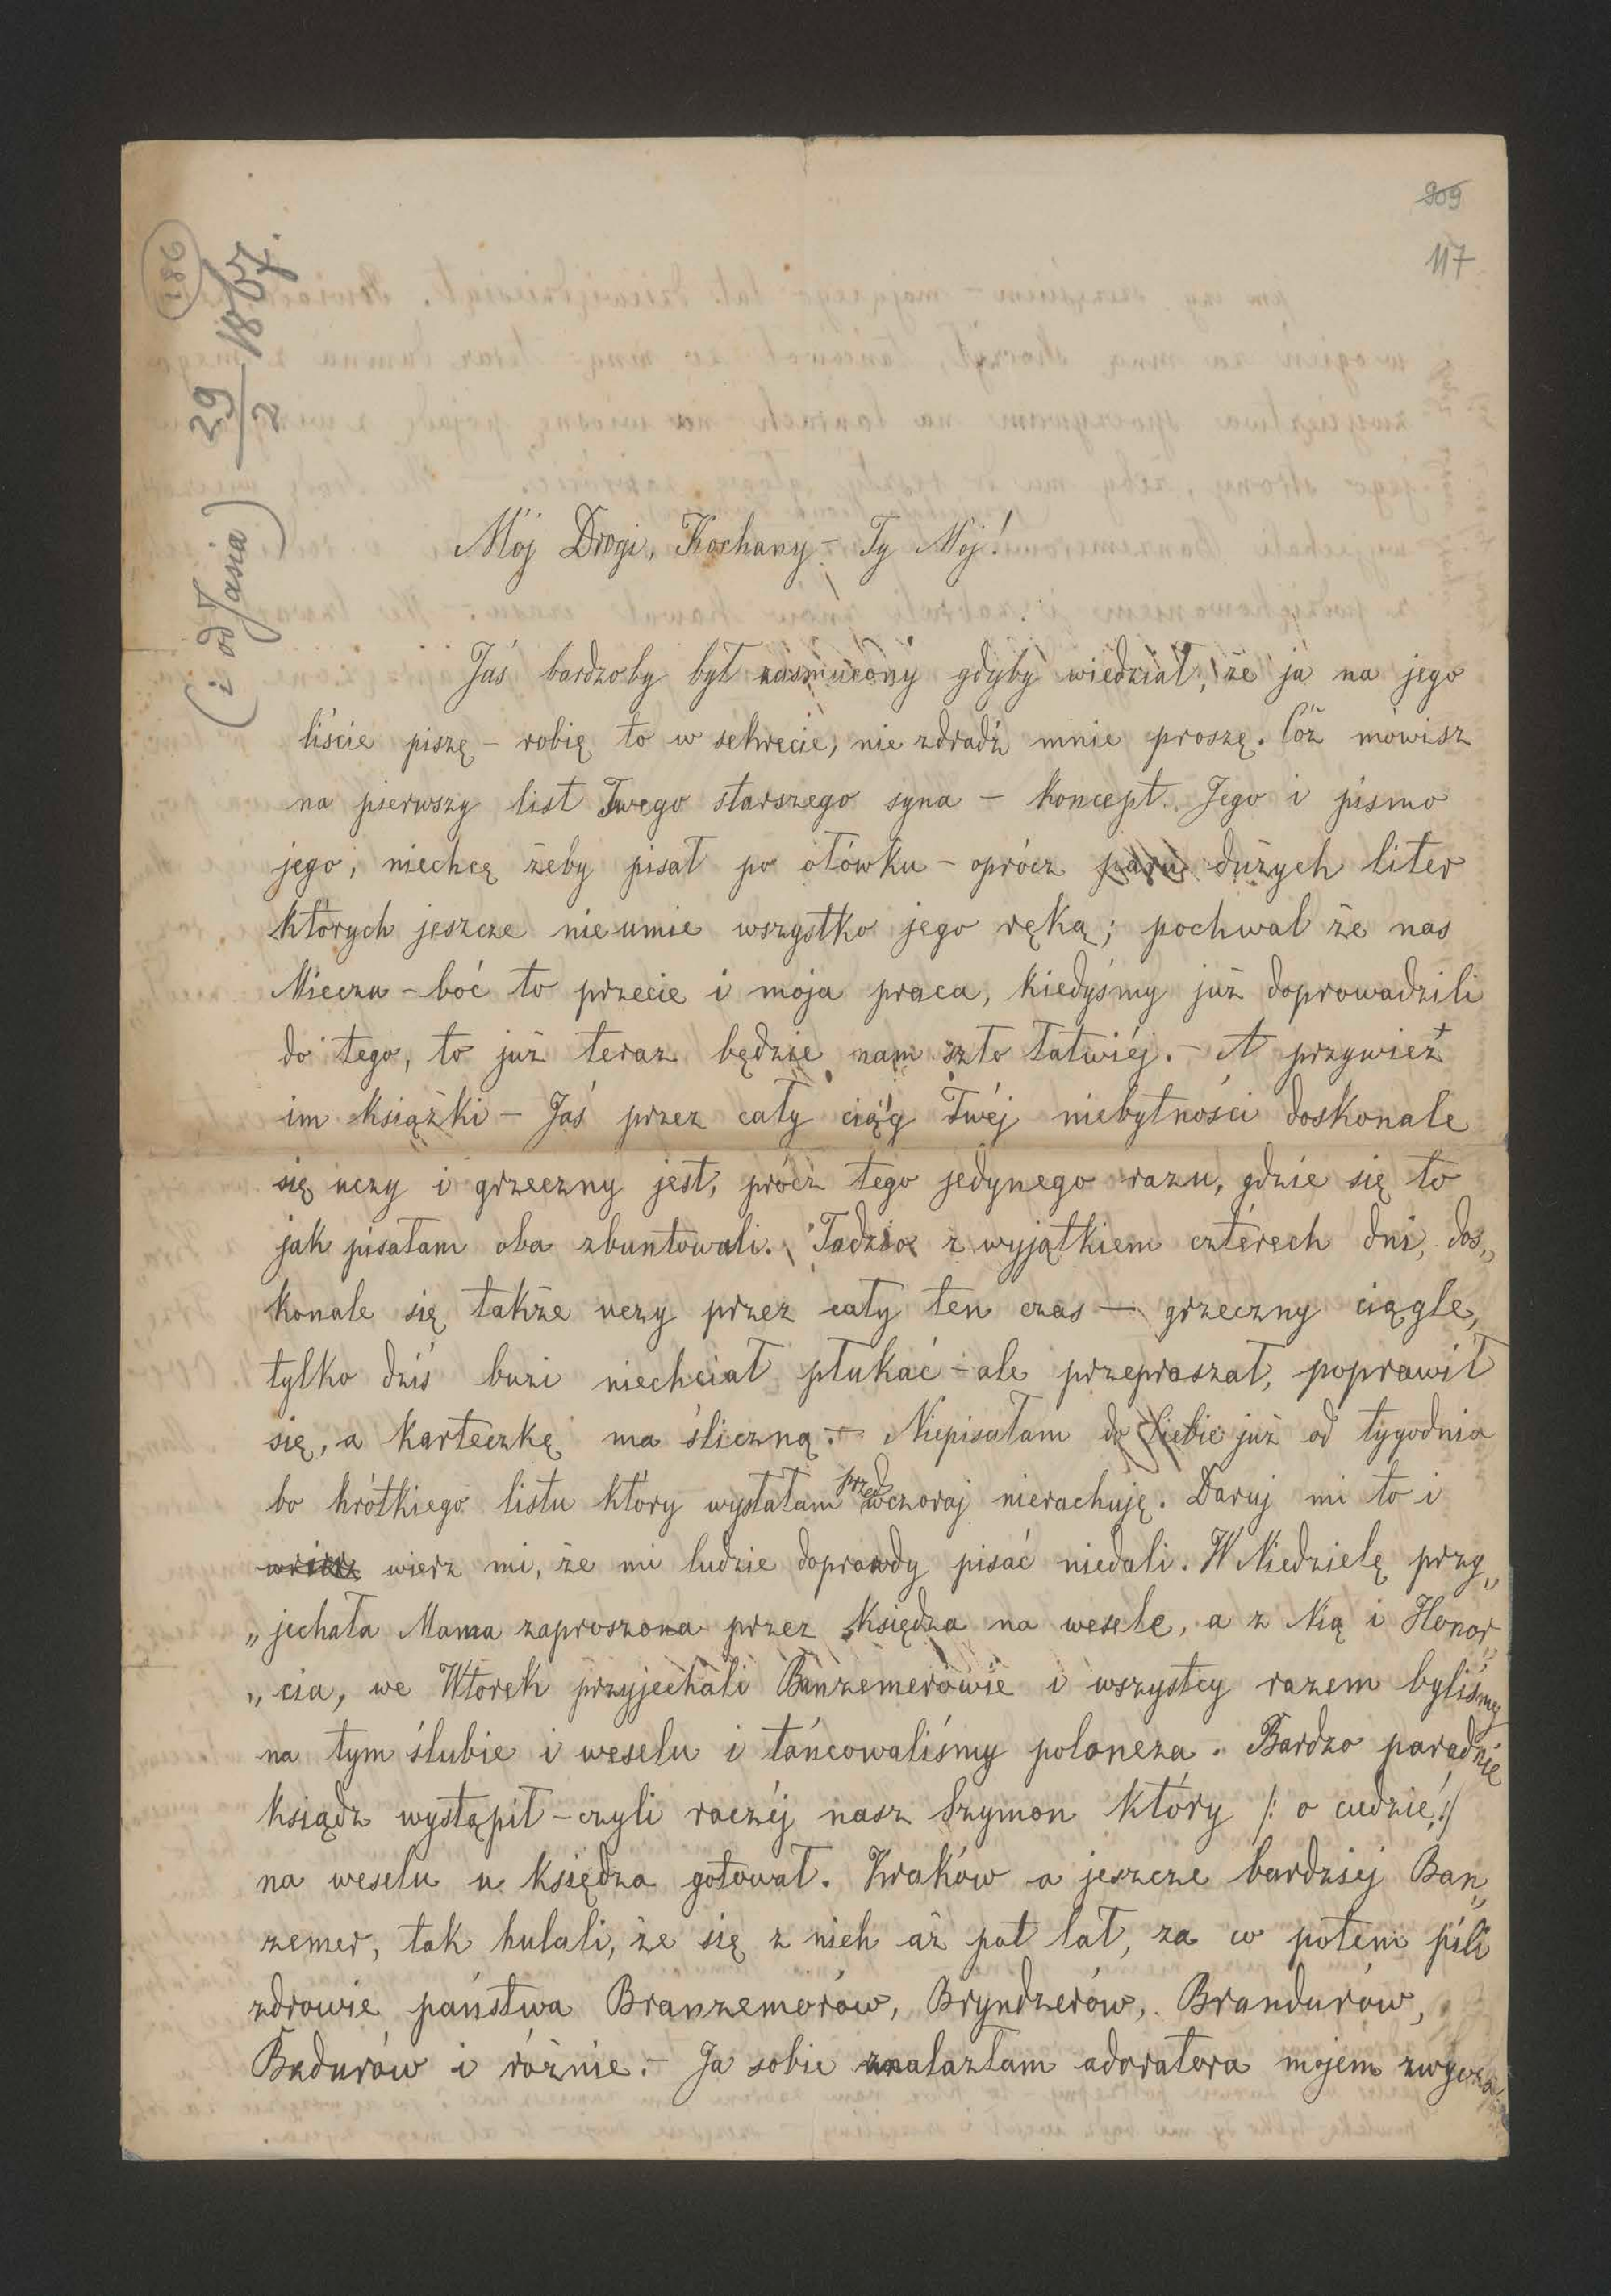 909
117
186
29/2 1867.
(i od Jasia)
Mój Drogi, Kochany – Ty Mój!
Jaś bardzoby był zasmucony gdyby wiedział, że ja na jego
liście piszę – robię to w sekrecie, nie zdradź mnie proszę. Cóż mówisz
na pierwszy list Twego starszego syna – koncept Jego i pismo
jego, niechcę żeby pisał po ołówku – oprócz paru dużych liter
których jeszcze nieumie wszystko jego ręką; pochwal że nas
Mieczu – boć to przecie i moja praca, kiedyśmy już doprowadzili
do tego, to już teraz będzie nam szło łatwiéj. – A przywieź
im książki – Jaś przez cały ciąg Twéj niebytności doskonale
się uczy i grzeczny jest, prócz tego jedynego razu, gdzie się to
jak pisałam oba zbuntowali. Tadzio z wyjątkiem czterech dni, dos„
konale się także uczy przez cały ten czas – grzeczny ciągle,
tylko dziś buzi niechciał płukać – ale przepraszał, poprawił
się, a karteczkę ma śliczną. – Niepisałam do Ciebie już od tygodnia
bo krótkiego listu który wysłałam przedwczoraj nierachuję. Daruj mi to i
wierz mi, że mi ludzie doprawdy pisać niedali. W Niedzielę przy„
„jechała Mama zaproszona przez Księdza na wesele, a z Nią i Honor„
„cia, we Wtorek przyjechali Banzemerowie i wszystcy razem byliśmy
na tym ślubie i weselu i tańcowaliśmy poloneza. Bardzo paradnie
ksiądz wystąpił – czyli raczéj nasz Szymon który /: o cudzie! :/
na weselu u księdza gotował. Kraków a jeszcze bardziej Ban„
zemer, tak hulali, że się z nich aż pot lał, za co potem pili
zdrowie państwa Branzemerów, Bryndzerów, Brandurów,
Badurów i różnie. – Ja sobie znalazłam adoratora mojem